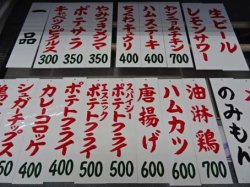 生ビール
レモンサワー
ヤンニョムチキン
700
ハムステーキ
400
350
やみつきメンマ
350
ポテサラ
350
キャベツのピクルス
300
一品
のみもの
油淋鶏
700
ハムカツ
600
唐揚げ
600
スパイシー
ポテトフライ
500
エスニック
ポテトフライ
500
ポテトフライ
400
カレーコロッケ
400
500
350